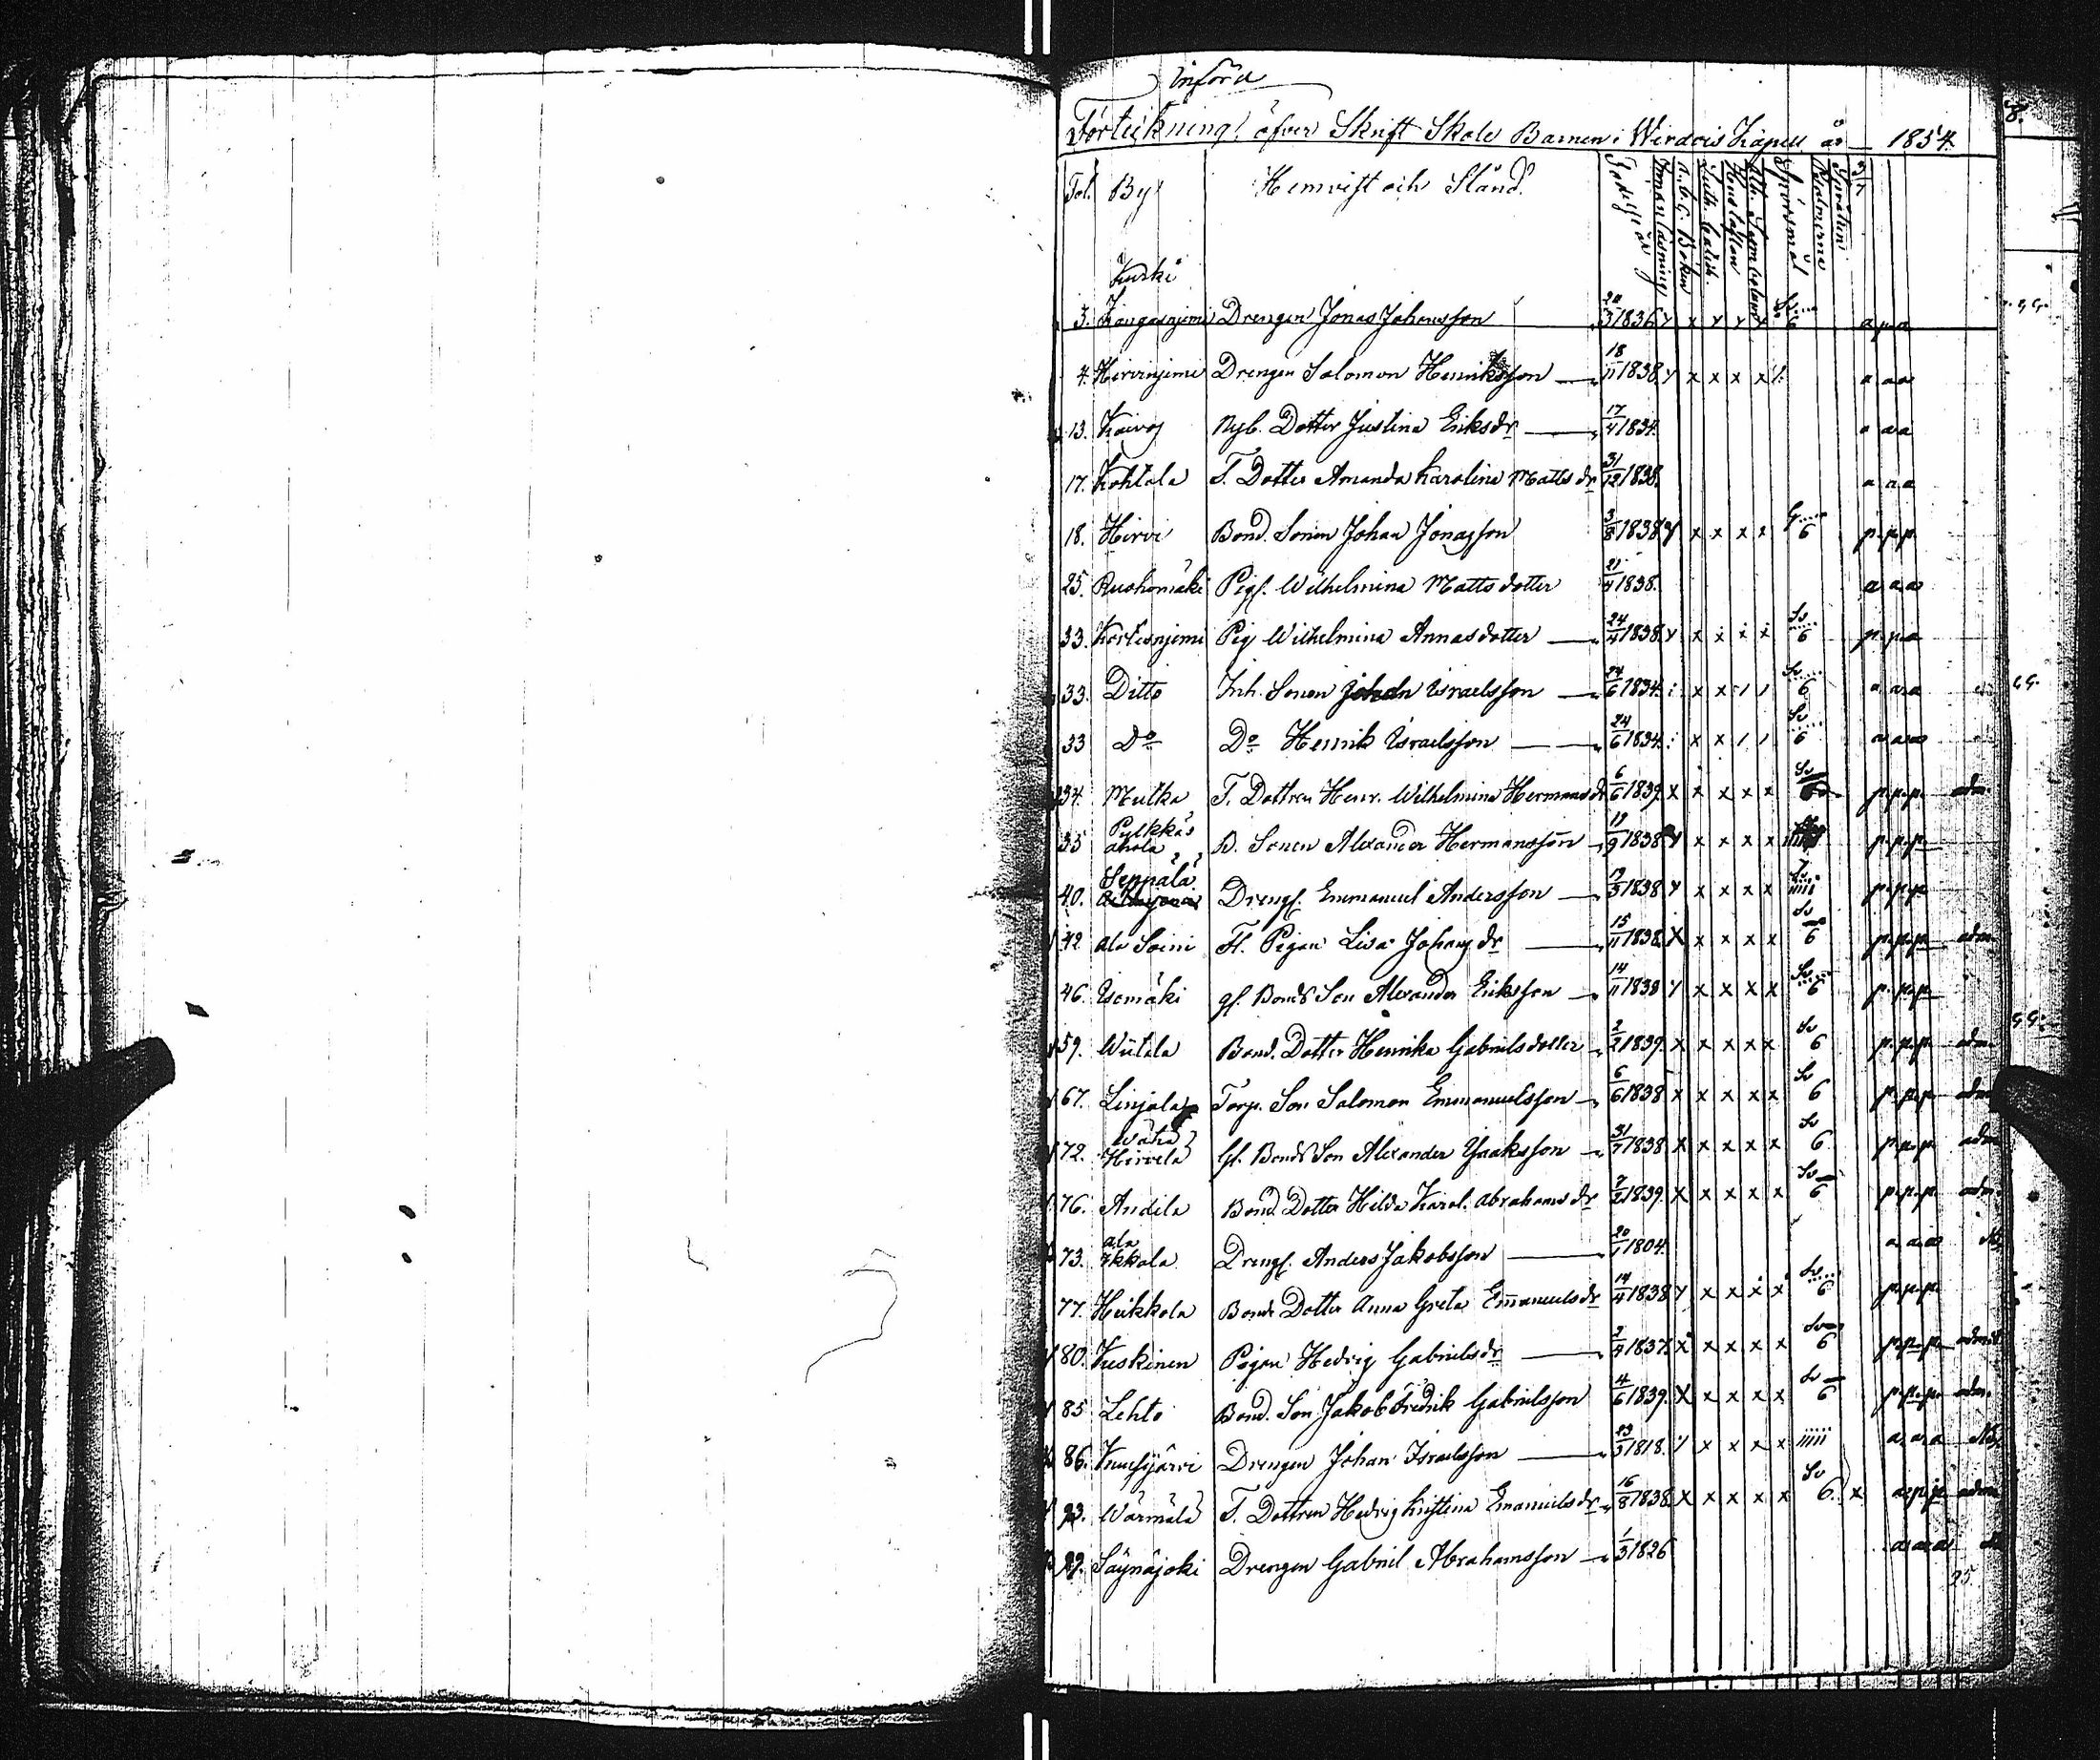 Införd
8.
Förteckning öfver Skrift Skole Barnen i Wirdois Kapell år 1854.
Fol. By Hemvist och Stånd Födelse år Innanläsning A.b.c. Boken Luth. Catech. Hustaflan Ath. Symbolum Spörsmål Psalmerne
Kurki
3. Kangasniemi Drengen Jonas Johansson 20/3 1836 y x y y x Sv. 6 a p a
4. Hirviniemi Drengen Salomon Henriksson 18/11 1838 y x x x x a a a
13. Koivoj Nyb. Dotter Justina Eriksdr 17/4 1834. a a a
17. Kohtala T. Dotter Amanda Karolina Mattsdr 31/12 1838. a a a
18. Hirvi Bond. Sonen Johan Jonasson 3/8 1838 y x x x x 6 p. p. p.
25. Ruohomäki Pig. Wilhelmina Mattsdotter 21/4 1838. a a a
33. Kortesniemi Pig Wilhelmina Annasdotter 24/4 1838. y x x x x Sv 6 p. p. a
33. Ditto Inh. Sonen Johan Israelsson 24/6 1834. x x / / Sv 6 a a a
33 Do Do Henrik Israelsson 24/6 1834. x x / / Sv 6 a a a
34. Mutka T. Dottren Henr. Wilhelmina Hermansdr 6/6 1839. x x x x x Sv 6 p. p. p. adm.
35 Pylkkäs ahola B. Sonen Alexander Hermansson 19/9 1838 y x x x x p. p. p.
40. Seppälä Dreng. Emmanuel Andersson 19/3 1838 y x x x x p. p. p.
42. Ala Soini Fl. Pigan Lisa Johansdr 15/11 1838. x x x x x Sv 6 p. p. p. adm.
46. Isomäki gl. Bonds Son Alexander Eriksson 14/11 1838 y x x x x Sv 6 p. p. p.
59. Wiitala Bond. Dotter Henrika Gabrielsdotter 2/2 1839. x x x x x Sv 6 p. p. p. adm.
67. Linjala Torp. Son Salomon Emmanuelsson 6/6 1838 x x x x x Sv 6 p. p. p. adm
72. Wähä Hirvelä gl. Bonds Son Alexander Isaksson 31/7 1838 x x x x x Sv 6 p. p. p. adm
76. Andila Bond. Dotter Hilda Karol. Abrahamsdr 7/2 1839. x x x x x Sv 6 p. p. p. adm.
73. Ala Ikkala Dreng. Anders Jakobsson 20/1 1804. a. a. a
77. Heikkola Bonds Dotter Anna Greta Emanuelsdr 14/4 1838 y x x x x Sv 6 p. p. p.
80. Kuskinen Pigan Hedvig Gabrielsdr 2/4 1837. x x x x x Sv 6 p. p. p.
85 Lehto Bond. Son Jakob Fredrik Gabrielsson 4/6 1839. x x x x x Sv 6 p. p. p. adm.
86. Drengen Johan Israelsson 23/3 1818. y x x x x a. a. a
93. Wärmälä T. Dottren Hedvig Kristina Emanuelsdr 16/8 1838. x x x x x Sv 6. x a. p. p. adm
99. Säynäjoki Drengen Gabriel Abrahamsson 1/3 1826 a. a. a
25.